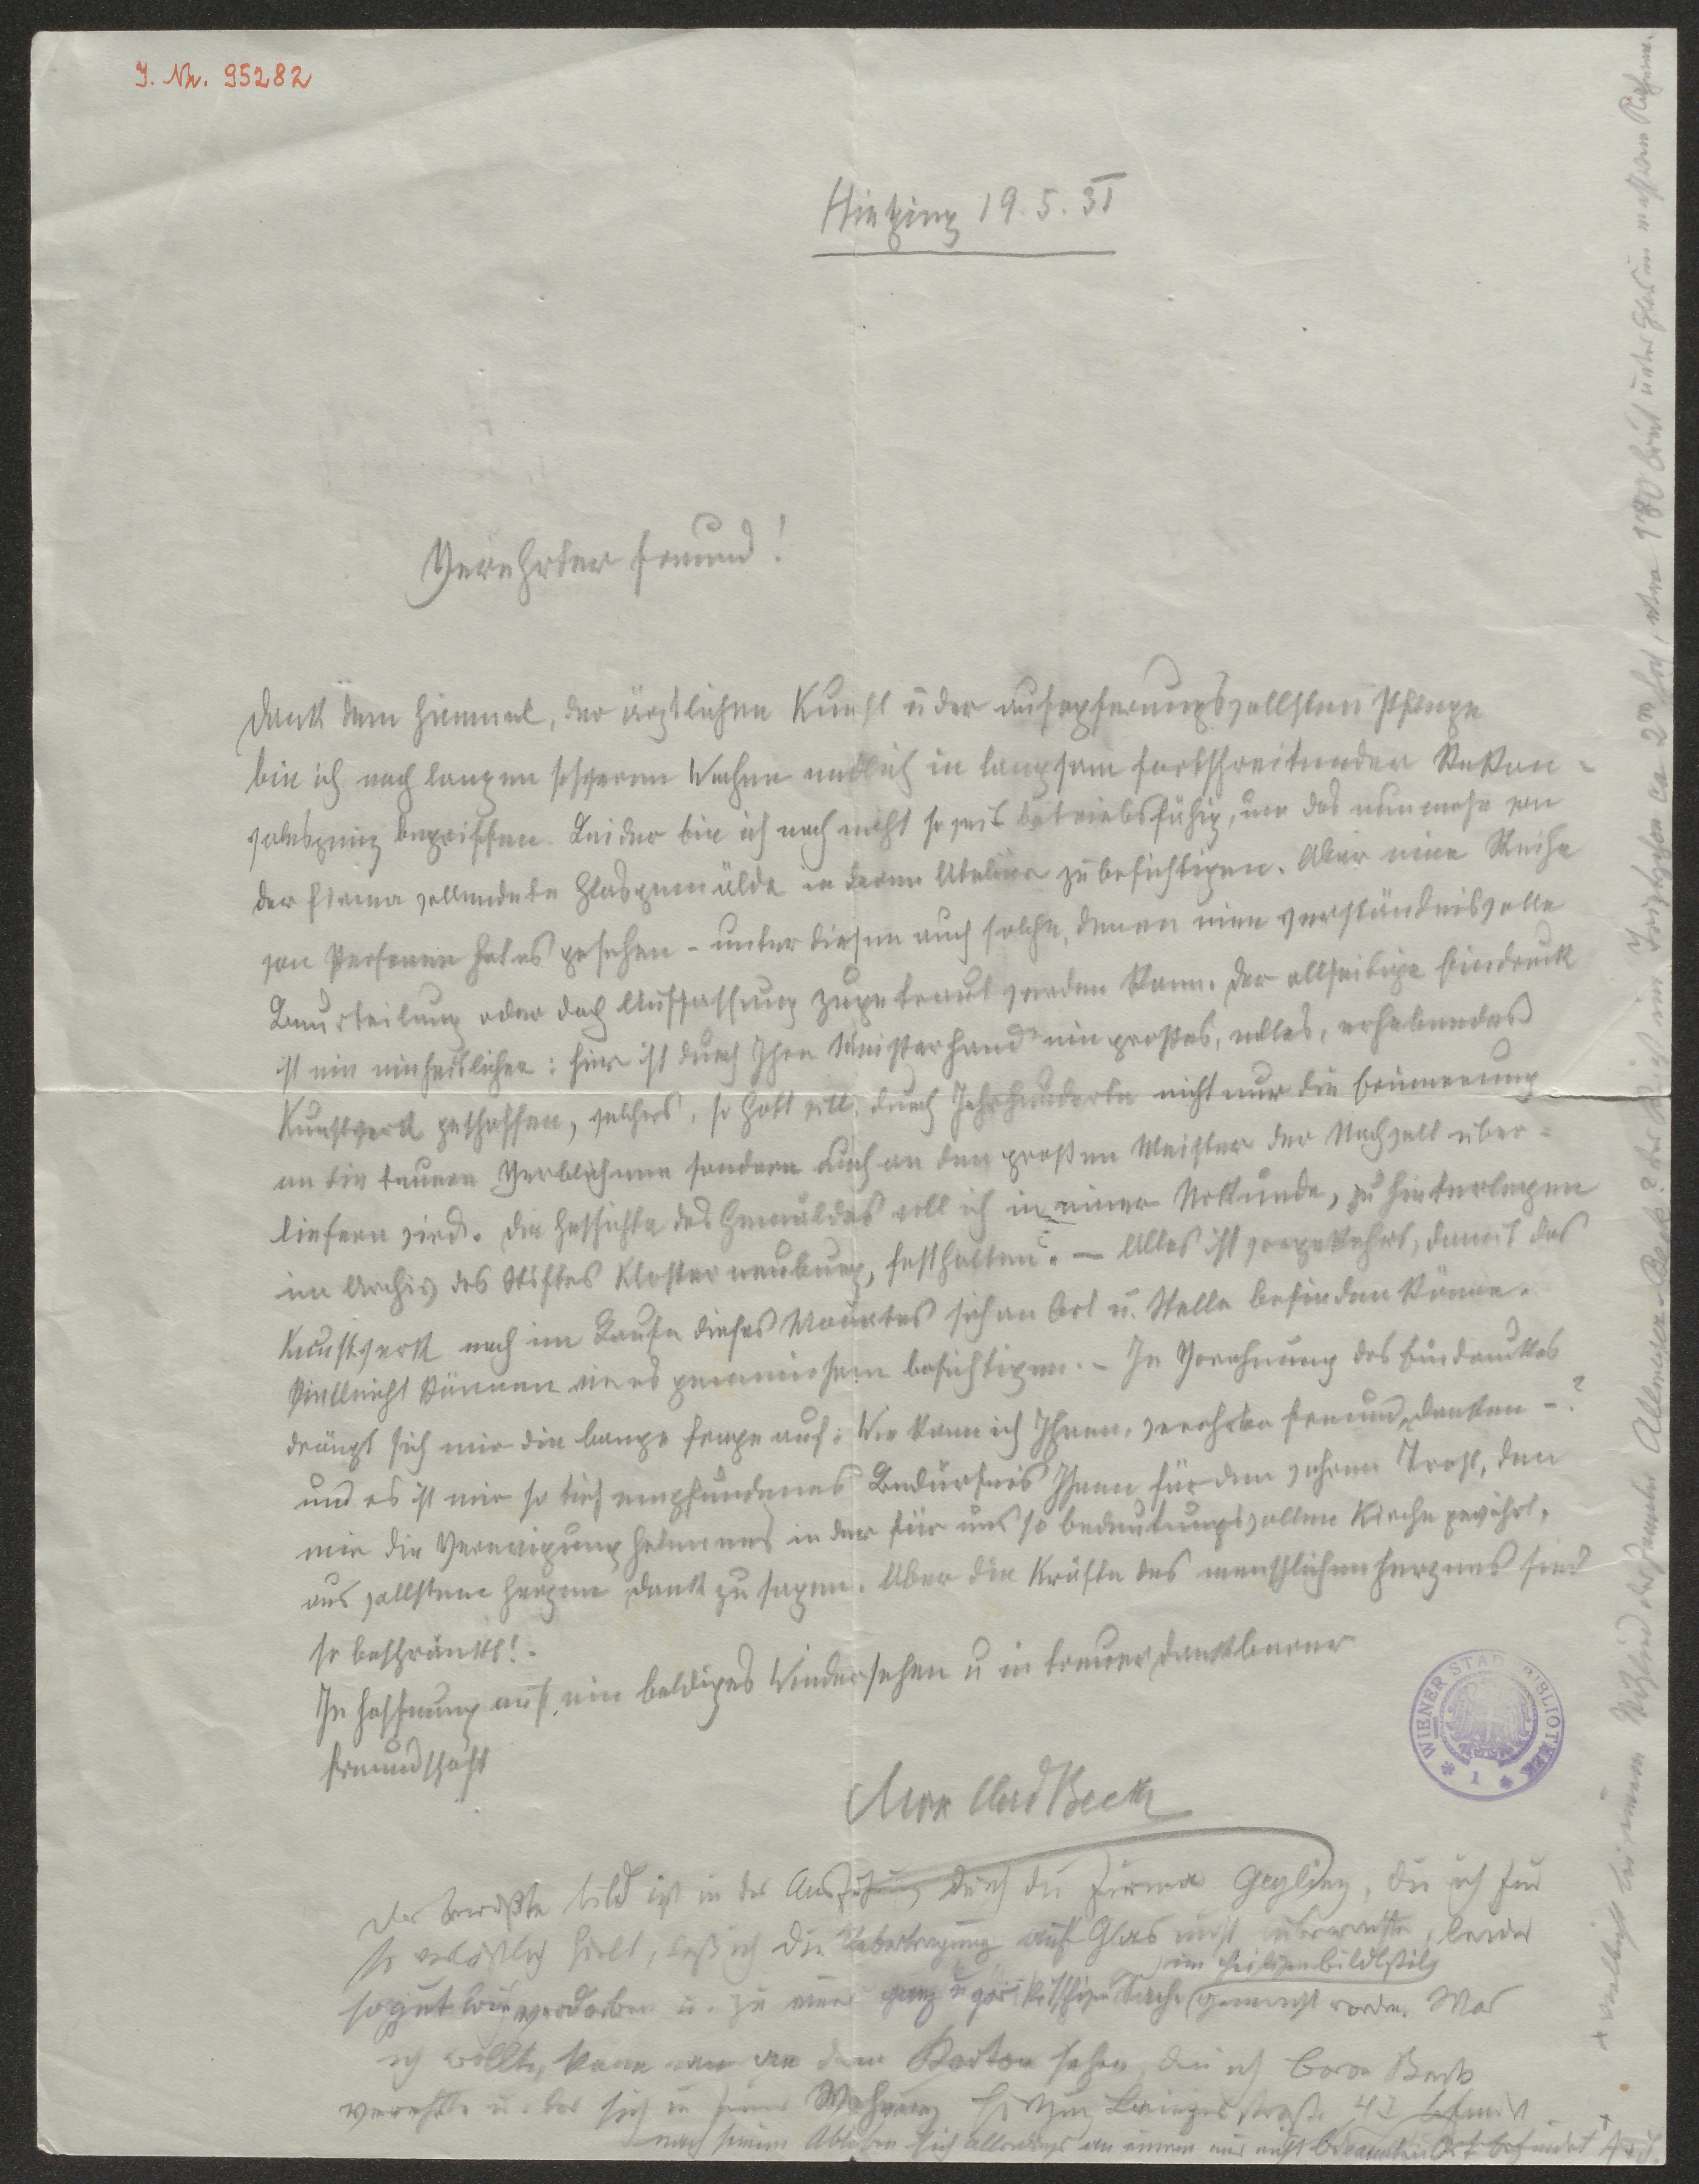 J. Nr. 95282
Hietzing 19. 5. 31
Verehrter Freund!
Dank dem Himmel, der ärztlichen Kunst u der aufopferungsvollsten Pflege
bin ich nach langen schweren Wochen endlich in langsam fortschreitender Rekon-
valeszenz begriffen. Leider bin ich noch nicht so weit betriebsfähig, um das nunmehr von
der Firma vollendete Glasgemälde in deren Atelier zu besichtigen. Aber eine Reihe
von Personen hat es gesehen - unter diesen auch solche, denen eine verständnisvolle
Beurteilung oder doch Auffassung zugetraut werden kann. Der allseitige Eindruck
ist ein einheitlicher: hier ist durch Ihre Meisterhand ein großes, edles, erhebendes
Kunstwerk geschaffen, welches, so Gott will, durch Jahrhunderte nicht nur die Erinnerung
an die teuren Verblichenen sondern auch an den großen Meister der Nachwelt über-
liefern wird. Die Geschichte des Gemäldes will ich in einer Urkunde, zu hinterlegen
im Archiv des Stiftes Klosterneuburg, festhalten. — Alles ist vorgekehrt, damit das
Kunstwerk noch im Laufe dieses Monates sich an Ort u. Stelle befinden könne.
Vielleicht können wir es gemeinsam besichtigen. - In Vorahnung des Eindruckes
drängt sich mir die bange Frage auf: Wie kann ich Ihnen, verehrter Freund, danken -?
und es ist mir so tief empfundenes Bedürfnis Ihnen für den wahren Trost, den
mir die Verewigung in der für uns so bedeutungsvollen Kirche gewährt,
aus vollstem Herzen Dank zu sagen. Aber die Kräfte des menschlichen Herzens sind
so beschränkt! -
In Hoffnung auf ein baldiges Wiedersehen u in treuer dankbarer
Freundschaft
Max Wlad Beck
Das bewußte Bild ist in der Ausführung durch die Firma Geyling, die ich für
so verläßlich hielt, daß ich die Uebertragung auf Glas nicht überwachte, leider
im Heiligenbildlstil
so gut wie verdorben u. zu einer ganz u gar kitschigen Sache gemacht worden. Was
ich wollte, kann man an dem Karton sehen, den ich Baron Beck
verehrte u. der sich in seiner Wohnung Hietzing Lainzerstraße 42 befindet
nach seinem Ableben sich allerdings an einem mir nicht bekannten Ort befindet
+ vielleicht bei einem Mitglied der Familie Beck? Der Karton ist ca 2m hoch, etwa 180 breit unter Glas in Rahmen.
WIENER STADTBIBLIOTHEK
1